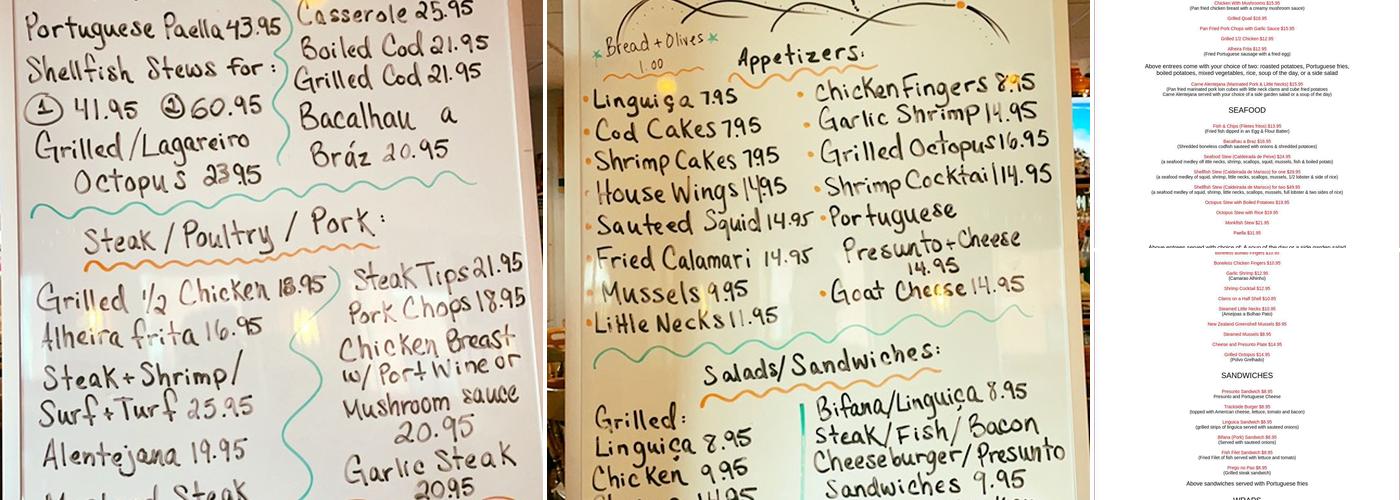 Portuguese Paella 43.95
Shellfish Stews for:
① 41.95 ② 60.95
Grilled/Lagareiro
Octopus 23.95
Casserole 25.95
Boiled Cod 21.95
Grilled Cod 21.95
Bacalhau a
Bráz 20.95
Steak / Poultry / Pork:
Grilled 1/2 Chicken 18.95
Alheira frita 16.95
Steak + Shrimp/
Surf + Turf 25.95
Alentejana 19.95
Steak Tips 21.95
Pork Chops 18.95
Chicken Breast
w/ Port Wine or
Mushroom sauce
20.95
Garlic Steak
20.95
Bread + Olives
1.00
Appetizers:
Linguiça 7.95
Cod Cakes 7.95
Shrimp Cakes 7.95
House Wings 14.95
Sauteed Squid 14.95
Fried Calamari 14.95
Mussels 9.95
Little Necks 11.95
Chicken Fingers 8.95
Garlic Shrimp 14.95
Grilled Octopus 16.95
Shrimp Cocktail 14.95
Portuguese
Presunto + Cheese
14.95
Goat Cheese 14.95
Salads/Sandwiches:
Grilled:
Linguiça 8.95
Chicken 9.95
Bifana/Linguiça 8.95
Steak/Fish/Bacon
Cheeseburger/Presunto
Sandwiches 9.95
Chicken With Mushrooms $15.95
(Pan fried chicken breast with a creamy mushroom sauce)
Grilled Quail $16.95
Pan Fried Pork Chops with Garlic Sauce $15.95
Grilled 1/2 Chicken $12.95
Alheira Frita $12.95
(Fried Portuguese sausage with a fried egg)
Above entrees come with your choice of two: roasted potatoes, Portuguese fries,
boiled potatoes, mixed vegetables, rice, soup of the day, or a side salad
Carne Alentejana (Marinated Pork & Little Necks) $15.95
(Pan fried marinated pork loin cubes with little neck clams and cube fried potatoes
Carne Alentejana served with your choice of a side garden salad or a soup of the day)
SEAFOOD
Fish & Chips (Filetes fritos) $13.95
(Fried fish dipped in an Egg & Flour Batter)
Bacalhau a Braz $16.95
(Shredded boneless codfish sauteed with onions & shredded potatoes)
Seafood Stew (Caldeirada de Peixe) $24.95
(a seafood medley off little necks, shrimp, scallops, squid, mussels, fish & boiled potato)
Shellfish Stew (Caldeirada de Marisco) for one $29.95
(a seafood medley of squid, shrimp, little necks, scallops, mussels, 1/2 lobster & side of rice)
Shellfish Stew (Caldeirada de Marisco) for two $49.95
(a seafood medley of squid, shrimp, little necks, scallops, mussels, full lobster & two sides of rice)
Octopus Stew with Boiled Potatoes $19.95
Octopus Stew with Rice $19.95
Monkfish Stew $21.95
Paella $31.95
Boneless Chicken Fingers $10.95
Garlic Shrimp $12.95
(Camarao Alhinho)
Shrimp Cocktail $12.95
Clams on a Half Shell $10.95
Steamed Little Necks $10.95
(Ameijoas a Bolhao Pato)
New Zealand Greenshell Mussels $9.95
Steamed Mussels $8.95
Cheese and Presunto Plate $14.95
Grilled Octopus $14.95
(Polvo Grelhado)
SANDWICHES
Presunto Sandwich $8.95
Presunto and Portuguese Cheese
Trackside Burger $8.95
(topped with American cheese, lettuce, tomato and bacon)
Linguica Sandwich $6.95
(grilled strips of linguica served with sauteed onions)
Bifana (Pork) Sandwich $6.95
(Served with sauteed onions)
Fish Filet Sandwich $8.95
(Fried Filet of fish served with lettuce and tomato)
Prego no Pao $8.95
(Grilled steak sandwich)
Above sandwiches served with Portuguese fries
WRAPS